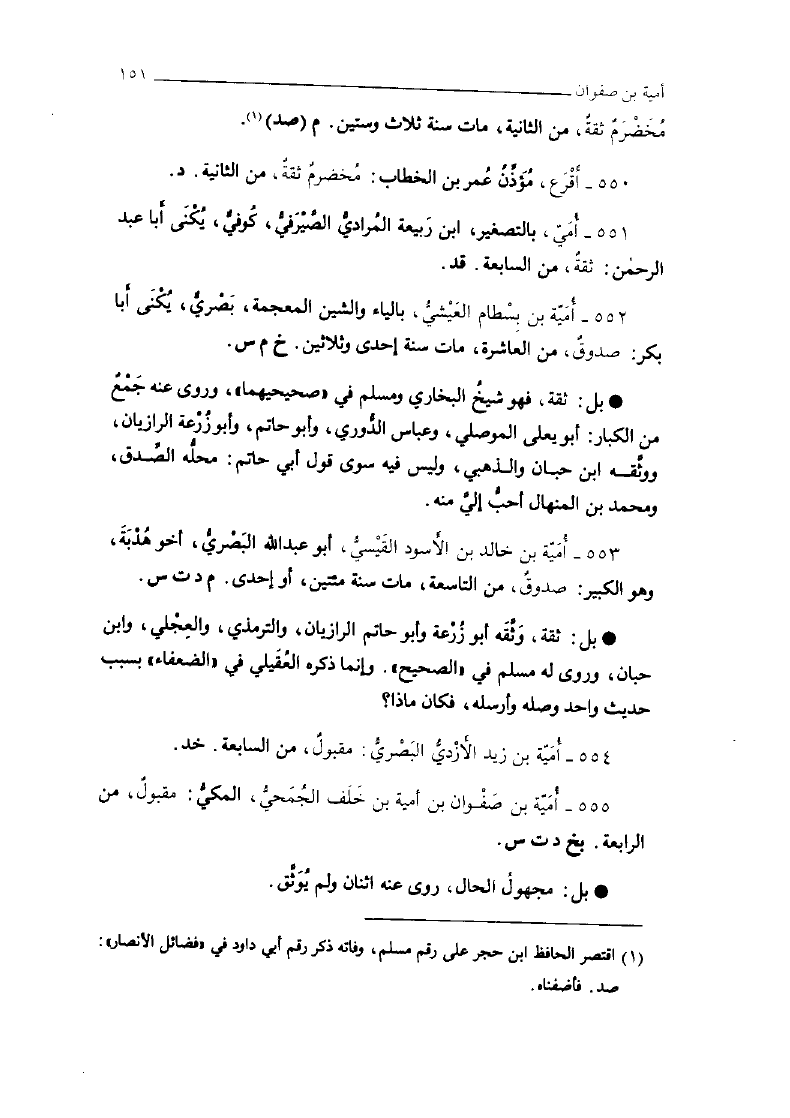 أمية بن صفوان ١٥١
مُخَضْرَمٌ ثقةٌ، من الثانية، مات سنة ثلاث وستين. م (صد)(١).
٥٥٠ ـ أَقْرَع، مُؤَذِّنُ عُمر بن الخطاب: مُخضرمٌ ثقةٌ، من الثانية. د.
٥٥١ ـ أُمَيّ، بالتصغير، ابن رَبيعة المُراديُّ الصَّيْرَفيُّ، كُوفيٌّ، يُكْنَى أَبا عبد
الرحمٰن: ثقةٌ، من السابعة. قد.
٥٥٢ ـ أُمَيّة بن بِسْطام العَيْشيُّ، بالياء والشين المعجمة، بَصْريٌّ، يُكْنَى أبا
بكر: صدوقٌ، من العاشرة، مات سنة إحدى وثلاثين. خ م س.
● بل: ثقة، فهو شيخُ البخاري ومسلم في «صحيحيهما»، وروى عنه جَمْعٌ
من الكبار: أبو يعلى الموصلي، وعباس الدُّوري، وأبو حاتم، وأبو زُرْعة الرازيان،
ووثَّقــه ابن حبـان والـذهبي، وليس فيه سوى قول أبي حاتم: محلُّه الصِّـدق،
ومحمد بن المنهال أحبُّ إليَّ منه.
٥٥٣ ـ أُمَيّة بن خالد بن الأسود القَيْسيُّ، أبو عبدالله البَصْريُّ، أخو هُدْبَةَ،
وهو الكبير: صدوقٌ، من التاسعة، مات سنة مئتين، أو إحدى. م د ت س.
● بل: ثقة، وَثَّقه أبو زُرْعة وأبو حاتم الرازيان، والترمذي، والعِجْلي، وابن
حبان، وروى له مسلم في «الصحيح». وإنما ذكره العُقَيلي في «الضعفاء» بسبب
حديث واحد وصله وأرسله، فكان ماذا؟
٥٥٤ ـ أُمَيّة بن زيد الأَزْديُّ البَصْريُّ: مقبولٌ، من السابعة. خد.
٥٥٥ ـ أُمَيّة بن صَفْـوان بن أمية بن خَلَف الجُمَحيُّ، المكيُّ: مقبولٌ، من
الرابعة. بخ د ت س.
● بل: مجهولُ الحال، روى عنه اثنان ولم يُوَثَّق.
(١) اقتصر الحافظ ابن حجر على رقم مسلم، وفاته ذكر رقم أبي داود في «فضائل الأنصار»:
صد. فأضفناه.